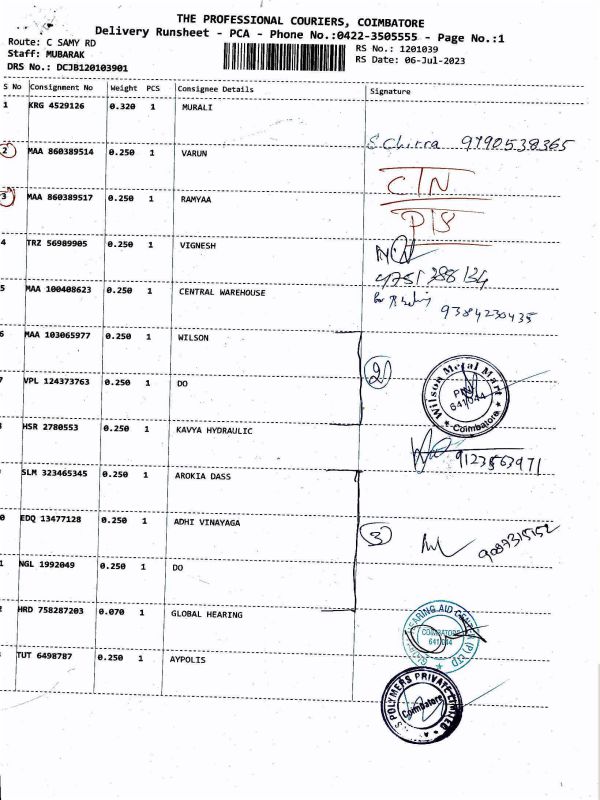 THE PROFESSIONAL COURIERS, COIMBATORE
Delivery Runsheet - PCA - Phone No.:0422-3505555 - Page No.:1
Route: C SAMY RD
RS No.: 1201039
Staff: MUBARAK
RS Date: 06-Jul-2023
DRS No.: DCJB120103901
S No Consignment No Weight PCS Consignee Details Signature
1 KRG 4529126 0.320 1 MURALI
S. Chitra 9790538365
2 MAA 860389514 0.250 1 VARUN
C/N
3 MAA 860389517 0.250 1 RAMYAA
P/S
4 TRZ 56989905 0.250 1 VIGNESH
5 MAA 100408623 0.250 1 CENTRAL WAREHOUSE
9384230435
6 MAA 103065977 0.250 1 WILSON
2
Wilson Metal Mart
PIN
641044
Coimbatore
7 VPL 124373763 0.250 1 DO
HSR 2780553 0.250 1 KAVYA HYDRAULIC
9123563971
SLM 323465345 0.250 1 AROKIA DASS
0 EDQ 13477128 0.250 1 ADHI VINAYAGA
3
9087315152
1 NGL 1992049 0.250 1 DO
2 HRD 758287203 0.070 1 GLOBAL HEARING
HEARING AID CENTRE (P) LTD
COIMBATORE
TUT 6498787 0.250 1 AYPOLIS
POLYMERS PRIVATE LIMITED
Coimbatore